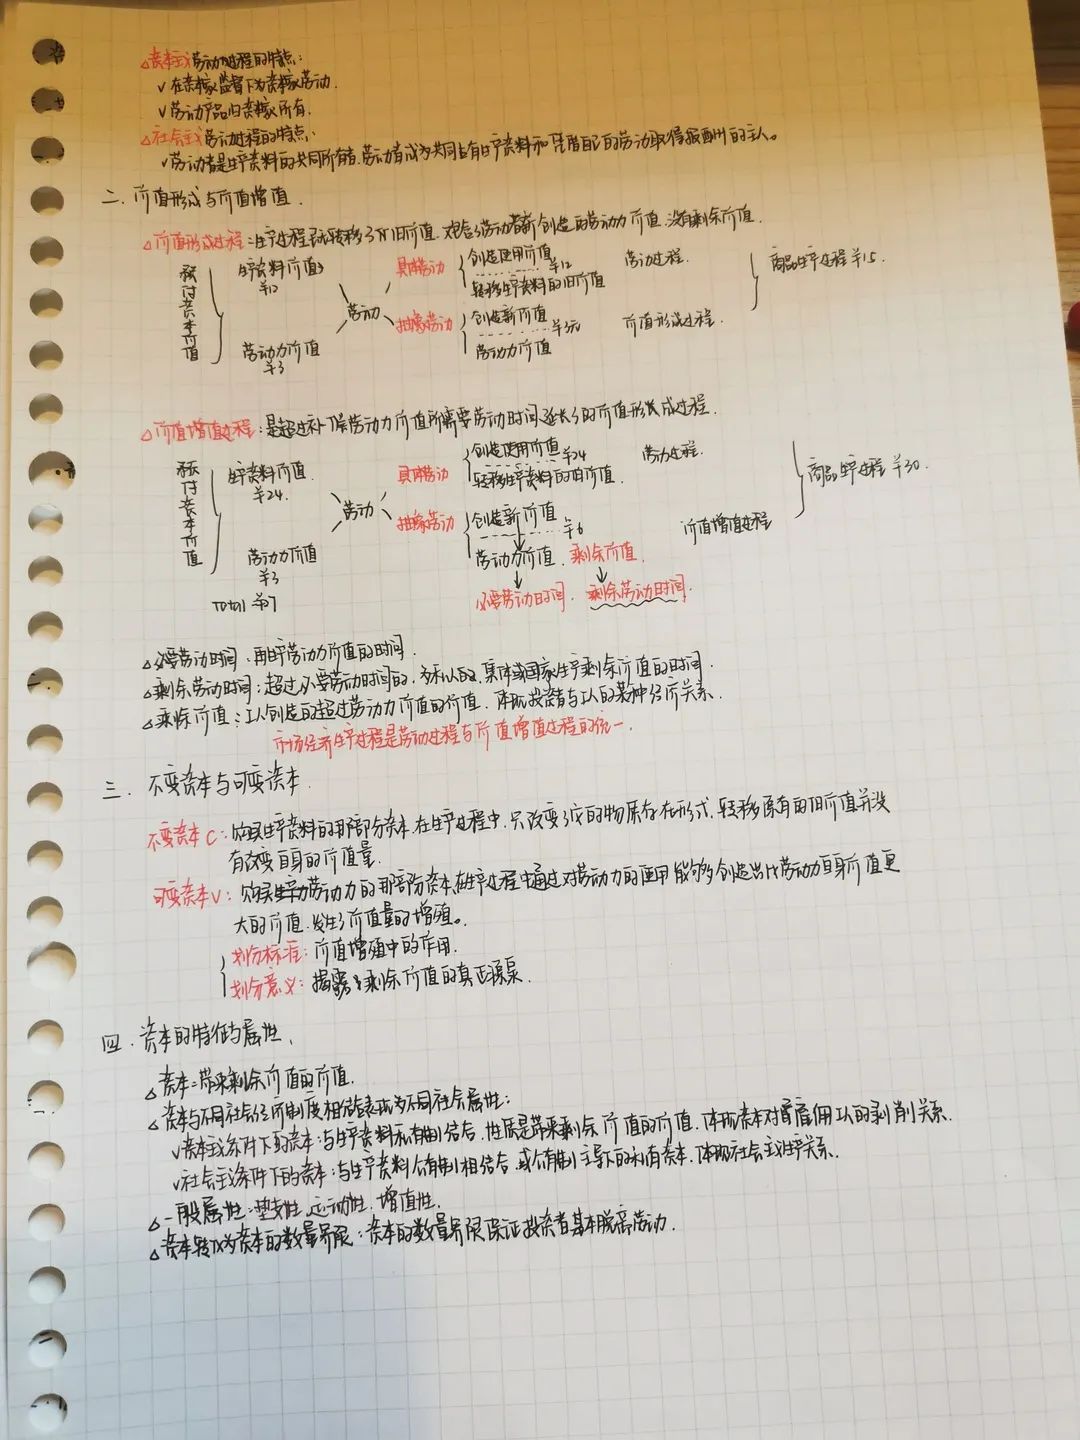 △资本主义劳动过程的特点:
√在资本家监督下为资本家劳动.
√劳动产品归资本家所有.
△社会主义劳动过程的特点:
√劳动者是生产资料的共同所有者.劳动者成为共同占有生产资料和凭借自己的劳动取得报酬的主人。
二.价值形成与价值增值.
△价值形成过程:生产过程转移了旧价值.劳动者新创造的劳动力价值.没有剩余价值.
预付资本价值
生产资料价值
¥12
劳动力价值
¥3
劳动
具体劳动
创造使用价值
¥12
转移生产资料的旧价值
劳动过程.
抽象劳动
创造新价值
¥3元
劳动力价值
价值形成过程.
商品生产过程¥15.
△价值增值过程:是超过补偿劳动力价值所需要劳动时间延长了的价值形成过程.
预付资本价值
生产资料价值.
¥24.
劳动力价值
¥3
Total ¥27
劳动
具体劳动
创造使用价值
¥24
转移生产资料的旧价值.
劳动过程.
抽象劳动
创造新价值
¥6
劳动力价值. 剩余价值.
必要劳动时间. 剩余劳动时间.
价值增值过程
商品生产过程¥30.
△必要劳动时间:再生产劳动力价值的时间.
△剩余劳动时间:超过必要劳动时间的.为私人的.集体或国家生产剩余价值的时间.
△剩余价值:工人创造的超过劳动力价值的价值.体现投资者与工人的某种经济关系.
市场经济生产过程是劳动过程与价值增值过程的统一.
三.不变资本与可变资本.
不变资本C:购买生产资料的那部分资本.在生产过程中.只改变了它的物质存在形式.转移原有的旧价值并没
有改变自身的价值量.
可变资本V:购买劳动力的那部分资本在生产过程中通过对劳动力的使用能够创造出比劳动力自身价值更
大的价值.发生了价值量的增殖。
划分标准:价值增殖中的作用.
划分意义:揭露了剩余价值的真正源泉.
四.资本的特征与属性.
△资本:带来剩余价值的价值.
△资本与不同社会经济制度相结合表现为不同社会属性:
√资本主义条件下的资本:与生产资料私有制结合.性质是带来剩余价值的价值.体现资本对雇佣工人的剥削关系.
√社会主义条件下的资本:与生产资料公有制相结合.或公有制主导下的私有资本.体现社会主义生产关系.
△一般属性:垫支性.运动性.增值性.
△资本转化为资本的数量界限:资本的数量界限保证投资者基本脱离劳动.